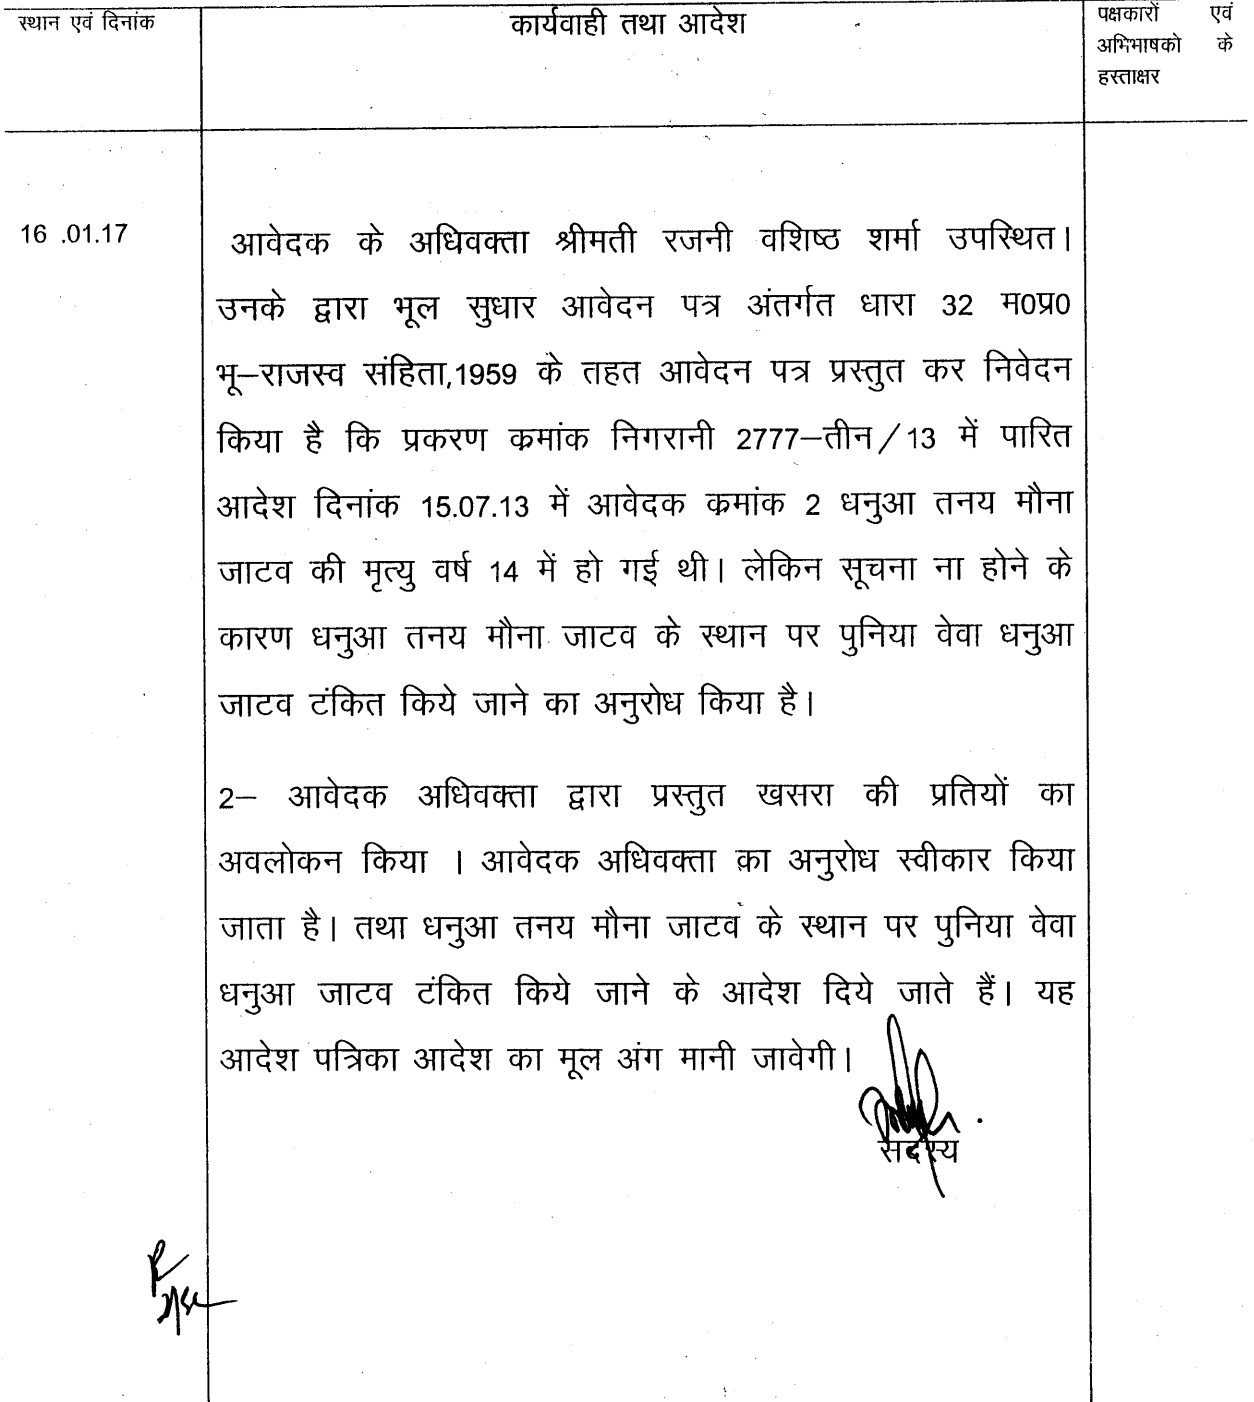 स्थान एवं दिनांक
कार्यवाही तथा आदेश
पक्षकारों एवं
अभिभाषको के
हस्ताक्षर
16 .01.17
आवेदक के अधिवक्ता श्रीमती रजनी वशिष्ठ शर्मा उपस्थित।
उनके द्वारा भूल सुधार आवेदन पत्र अंतर्गत धारा 32 म0प्र0
भू–राजस्व संहिता,1959 के तहत आवेदन पत्र प्रस्तुत कर निवेदन
किया है कि प्रकरण क्रमांक निगरानी 2777–तीन/13 में पारित
आदेश दिनांक 15.07.13 में आवेदक क्रमांक 2 धनुआ तनय मौना
जाटव की मृत्यु वर्ष 14 में हो गई थी। लेकिन सूचना ना होने के
कारण धनुआ तनय मौना जाटव के स्थान पर पुनिया वेवा धनुआ
जाटव टंकित किये जाने का अनुरोध किया है।
2– आवेदक अधिवक्ता द्वारा प्रस्तुत खसरा की प्रतियों का
अवलोकन किया । आवेदक अधिवक्ता का अनुरोध स्वीकार किया
जाता है। तथा धनुआ तनय मौना जाटव के स्थान पर पुनिया वेवा
धनुआ जाटव टंकित किये जाने के आदेश दिये जाते हैं। यह
आदेश पत्रिका आदेश का मूल अंग मानी जावेगी।
सदस्य